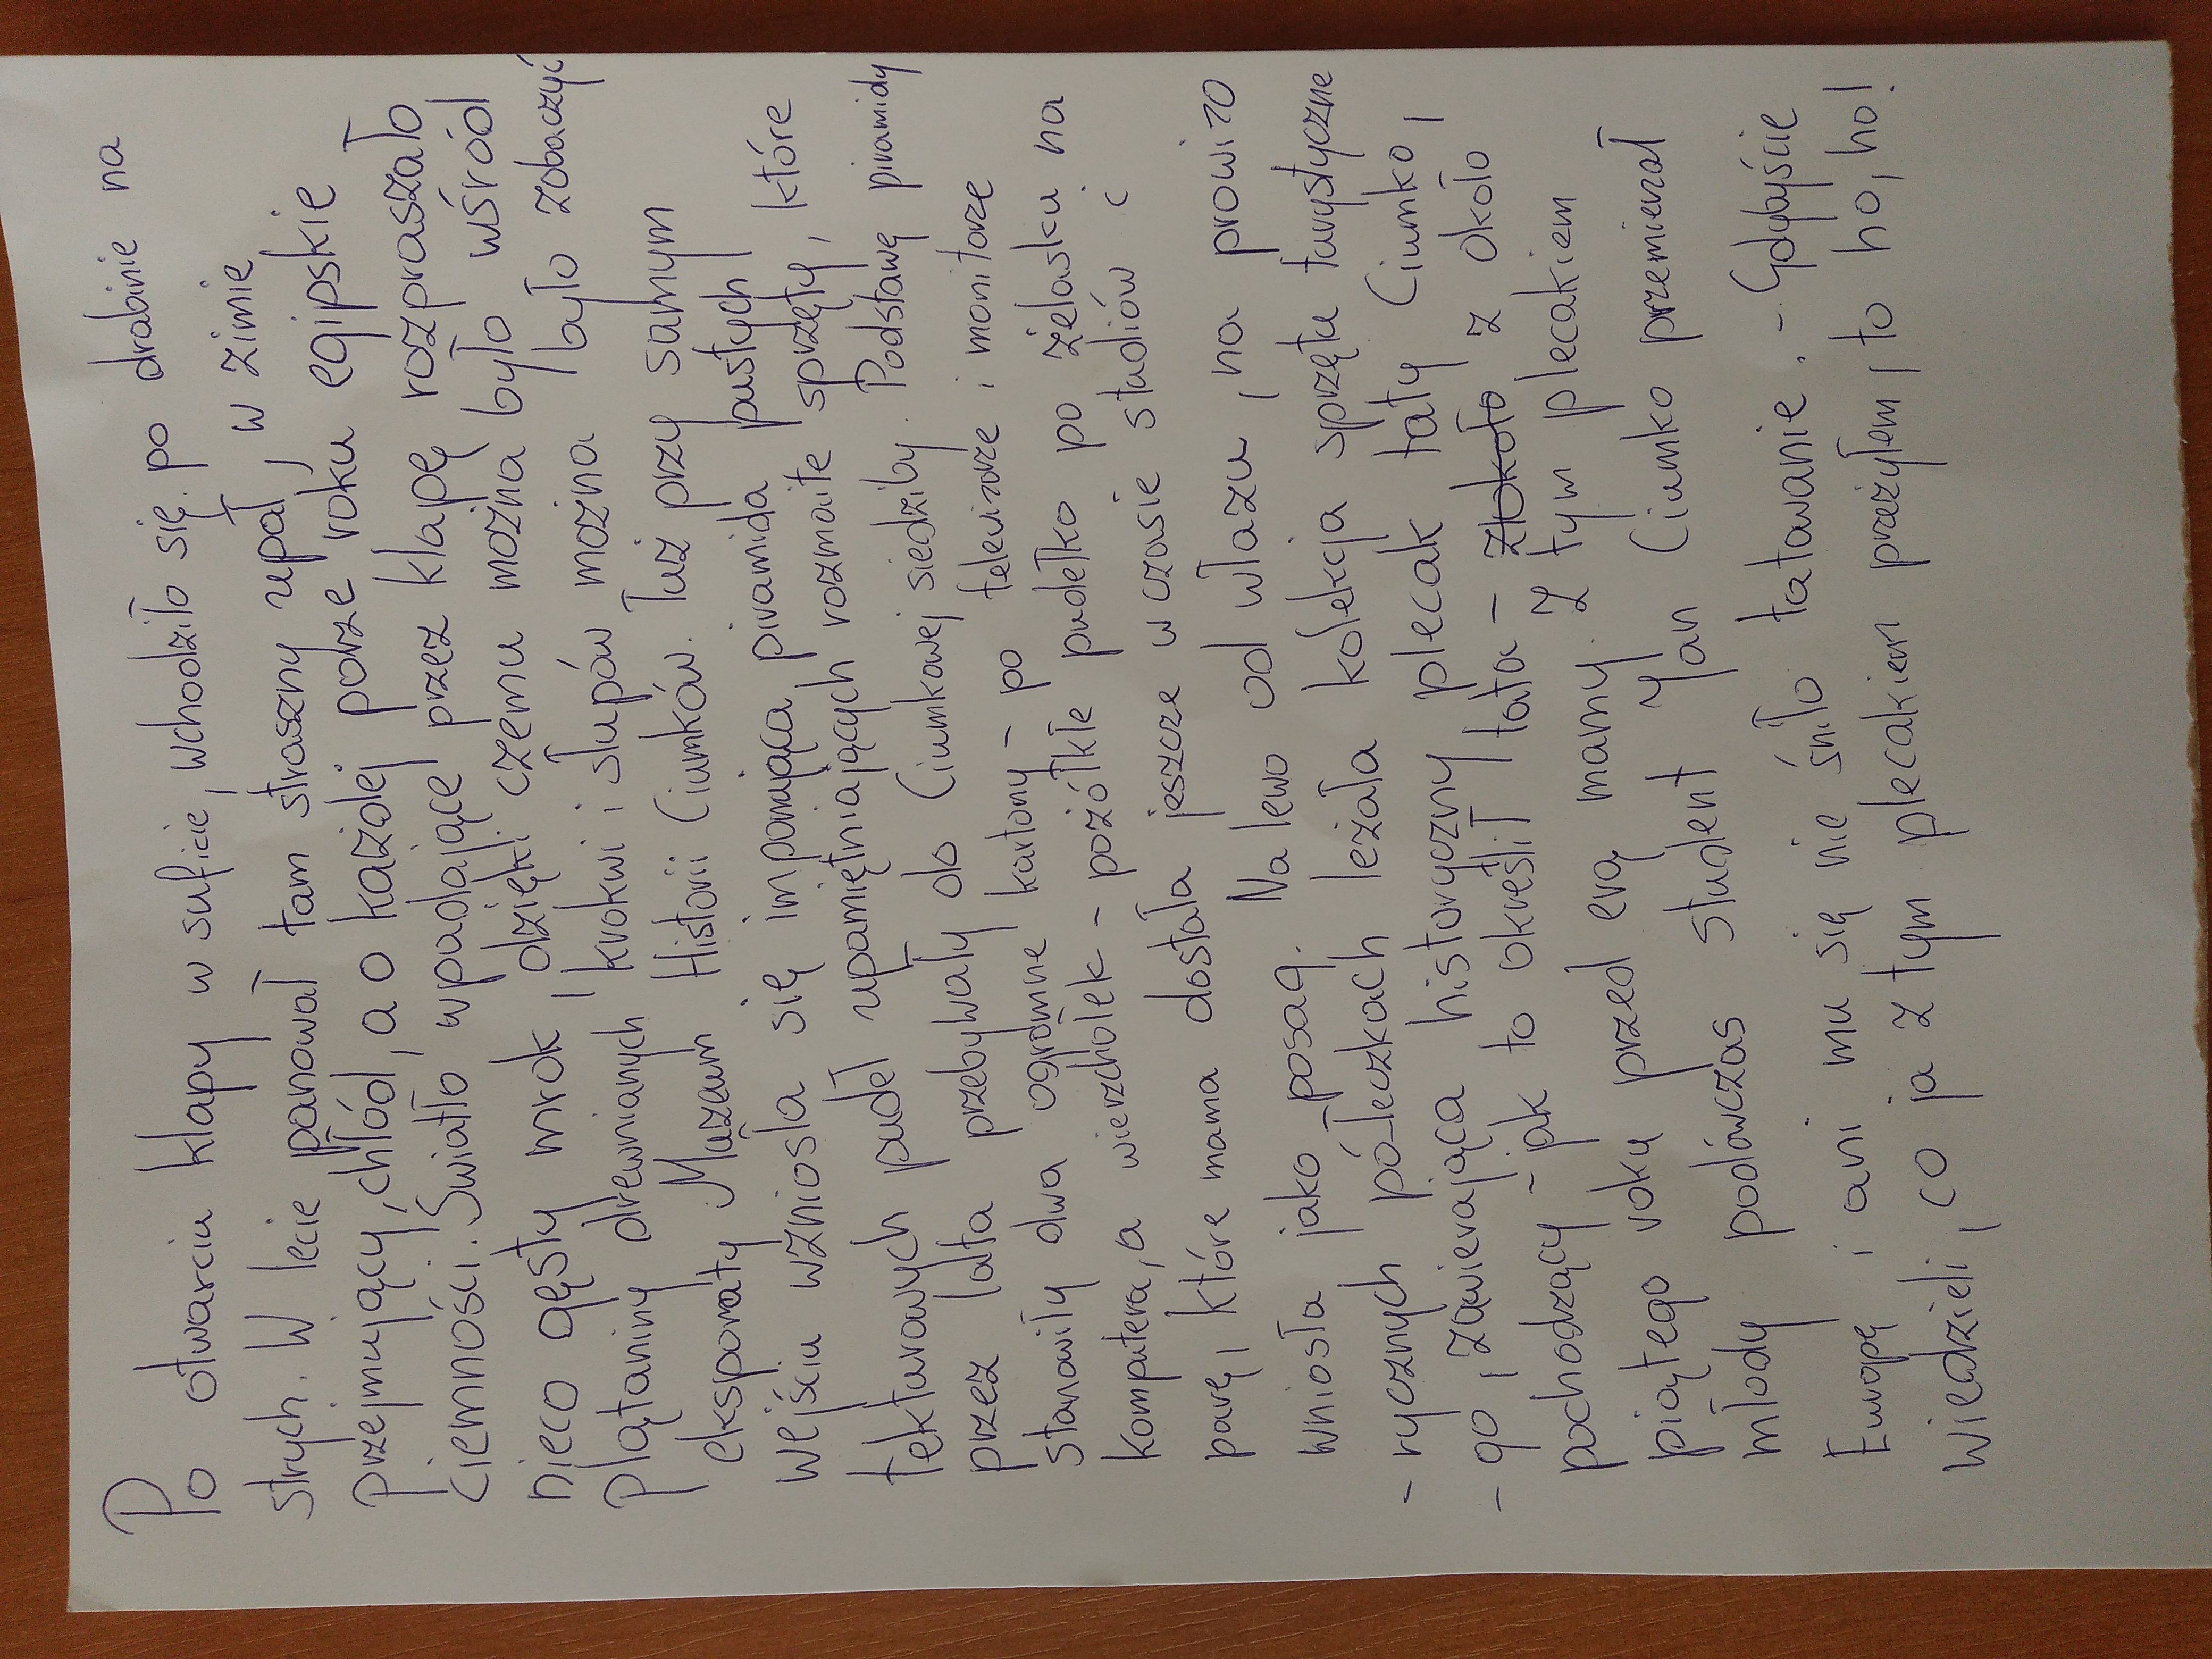 Po otwarciu klapy w suficie, wchodziło się po drabinie na
strych. W lecie panował tam straszny upał, w zimie
przejmujący, chłód, a o każdej porze roku egipskie
ciemności. Światło wpadające przez klapę rozpraszało
nieco gęsty mrok, dzięki czemu można było wśród
plątaniny drewnianych krokwi i słupów można było zobaczyć
eksponaty Muzeum Historii Ciumków. Tuż przy samym
wejściu wzniosla się imponująca piramida pustych,
tekturowych pudeł upamiętniających rozmaite sprzęty, które
przez lata przebywały do Ciumkowej siedziby. Podstawę piramidy
stanowiły dwa ogromne kartony - po telewizorze i monitorze
komputera, a wierzchołek - pożółkłe pudełko po żelasku na
parę, które mama dostała jeszcze w czasie studiów i
wniosła jako posag. Na lewo od włazu, na prowizo
- rycznych pó-łeczkach leżała kolekcja sprzętu turystyczne
- go, zawierająca historyczny plecak taty Ciumko,
pochodzący - jak to określił tata - z około
piątego roku przed erą mamy. Z tym plecakiem
młody podówczas student Jan Ciumko przemierzał
Europę i ani mu się nie śniło tatowanie. - Gdybyście
wiedzieli, co ja z tym plecakiem przeżyłem, to ho, ho!